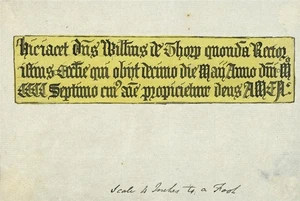 Hic iacet Dns Willms de Thorp quondā Rector
istius Ecclie qui obijt decimo die Maij Anno dni Mº
CCCC Septimo cuiº aīe propicietur deus AMEN
Scale 4 Inches to a Foot